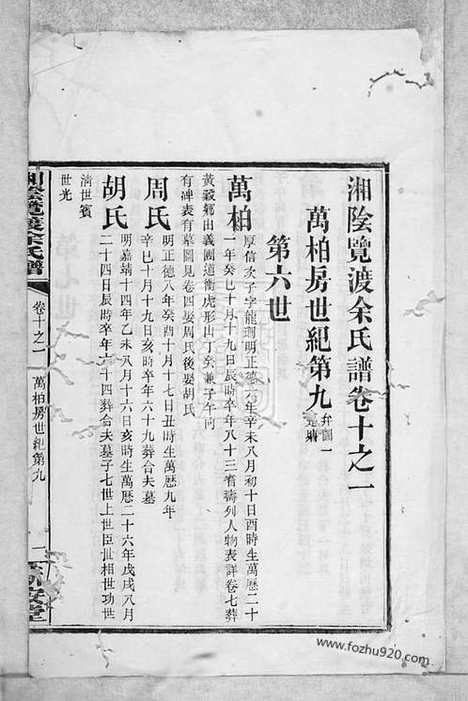 湘陰覽渡余氏譜卷十之一
萬柏房世紀第九
第六世
萬柏
厚信次子字龍珊明正德六年辛未八月初十日酉時生萬曆二十
一年癸巳十月十九日辰時卒年八十三耆壽列人物表詳卷七葬
黃穀鄉由義團道衝虎形山丁癸兼子午向
有碑表有墓圖見卷四娶周氏後娶胡氏
周氏
明正德八年癸酉十月十七日丑時生萬曆九年
辛巳十月十九日亥時卒年六十九葬合夫墓
胡氏
明嘉靖十四年乙未八月十六日亥時生萬曆二十六年戊戌八月
二十四日辰時卒年六十四葬合夫墓子七世上世臣世相世功世
清世賓
世光
湘陰覽渡余氏譜
卷十之一
萬柏房世紀第九
一
www.fozhu920.com